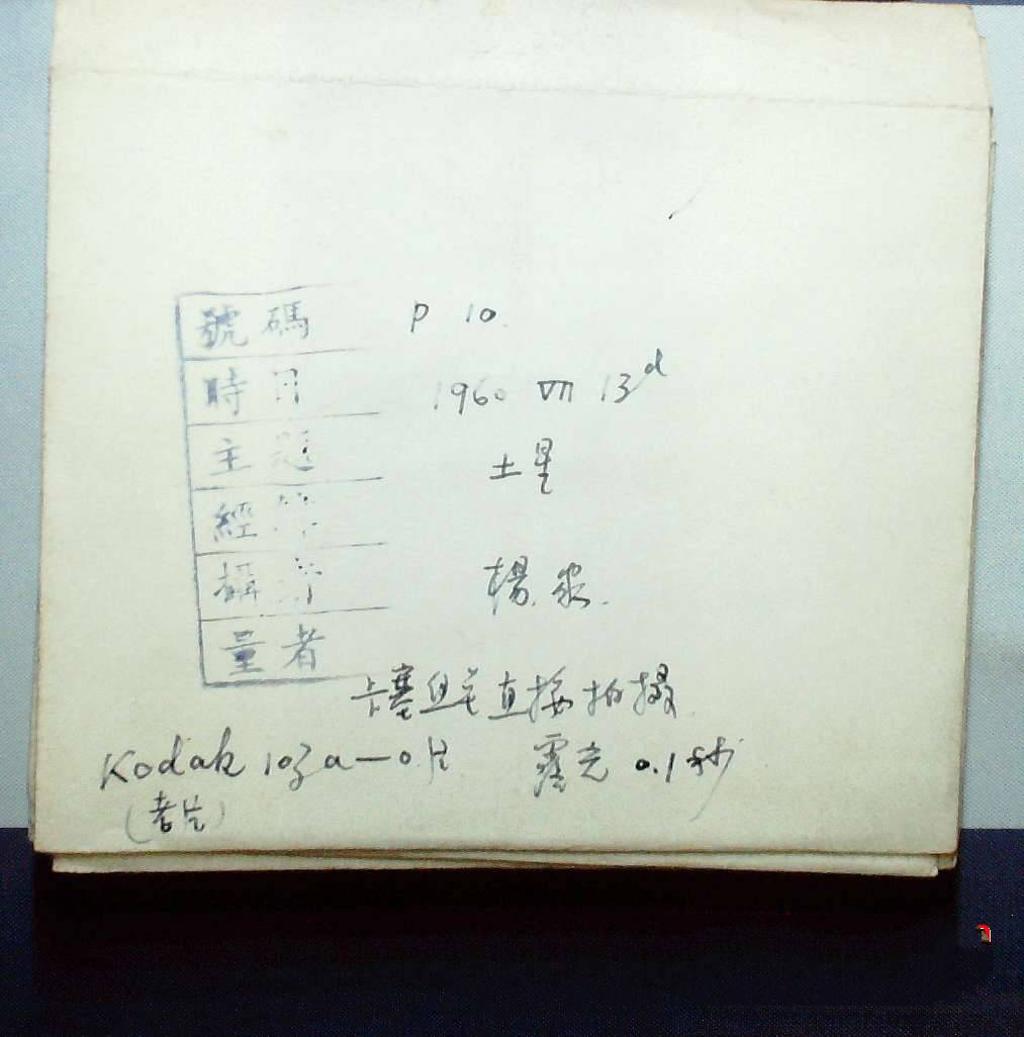 號碼 P 10.
時日 1960 VII 13d
主題 土星
經
攝 楊
量者
卡塞 直接拍攝
Kodak 103a-O片 露光 0.1秒
(老片)